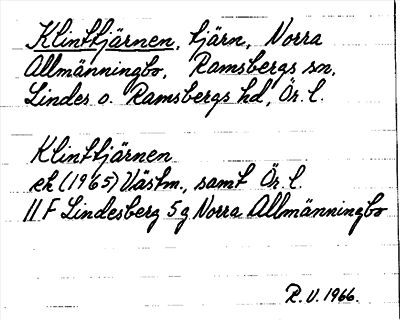 Klinttjärnen, tjärn, Norra
Allmänningbo, Ramsbergs sn,
Lindes o. Ramsbergs hd, Ör. l.
Klinttjärnen
ek (1965) Västm., samt Ör. l.
11 F Lindesberg 5 g Norra Allmänningbo
R. V. 1966.